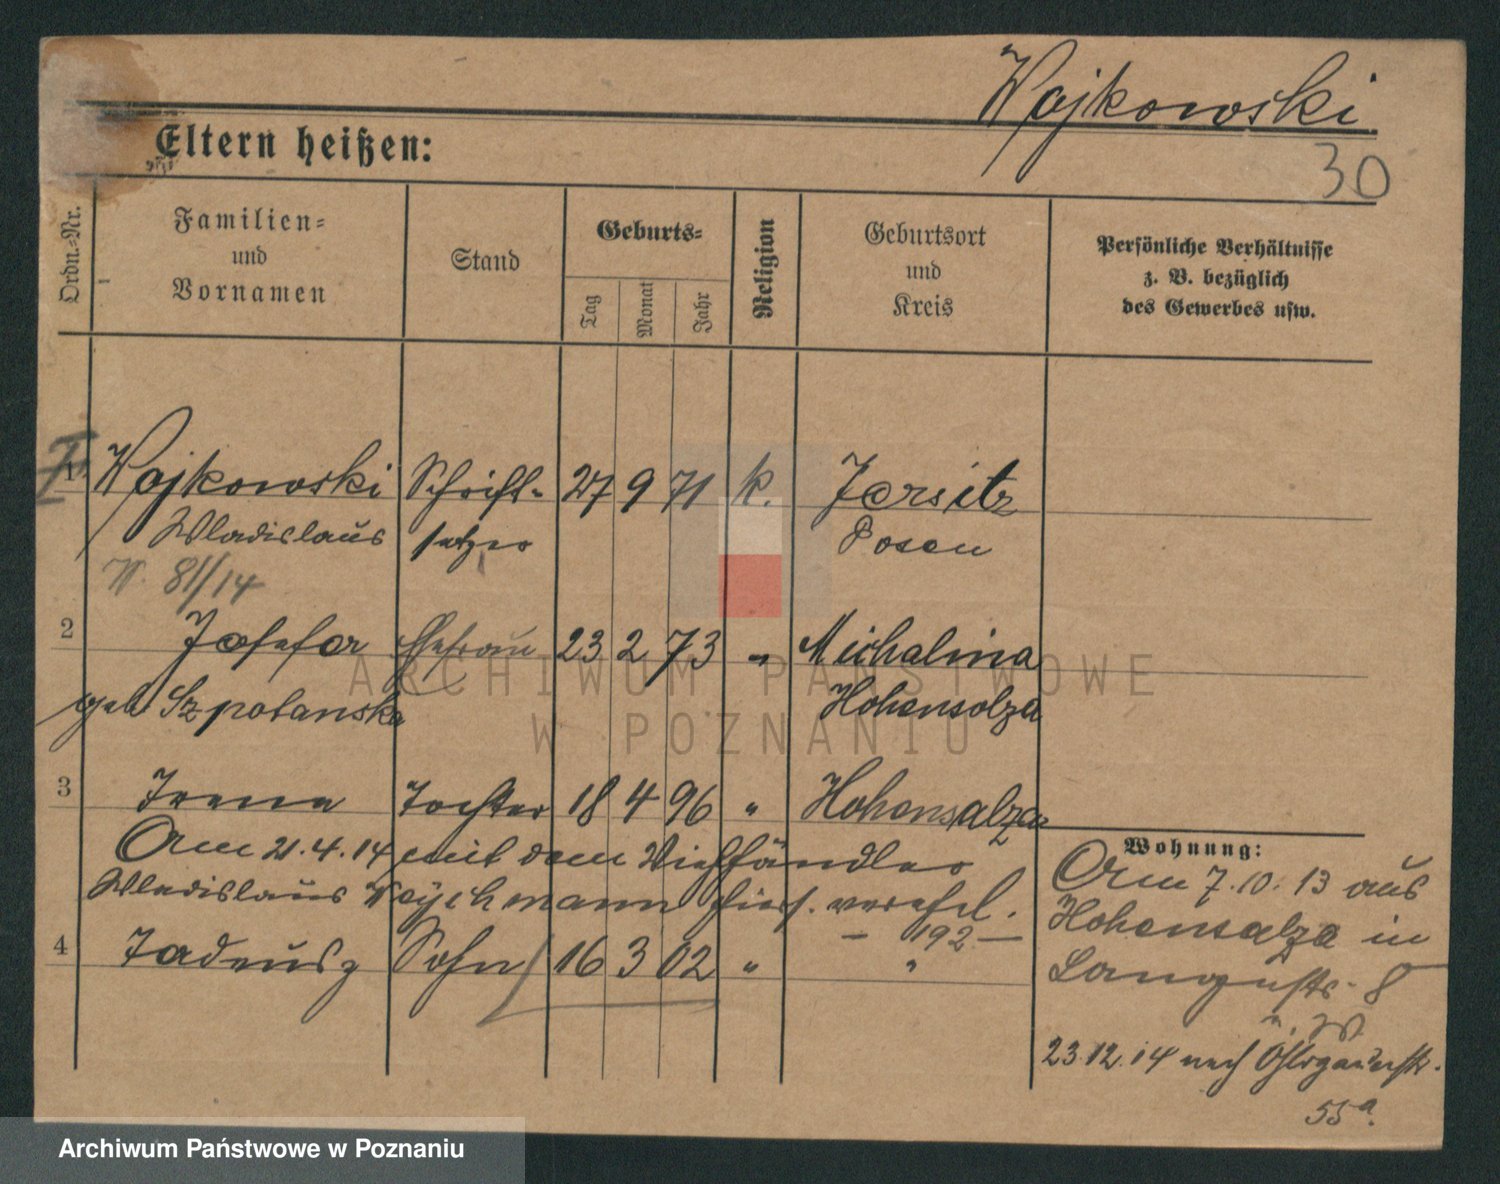 Wojkowski
Eltern heißen:
30
Ordn.-Nr.
Familien-
und
Vornamen
Stand
Geburts-
Tag
Monat
Jahr
Religion
Geburtsort
und
Kreis
Persönliche Verhältnisse
z. B. bezüglich
des Gewerbes usw.
1 Wojkowski Schrift- 27 9 71 k. Jersitz
Wladislaus setzer Posen
W. 811/14
2 Josefa Ehefrau 23 2 73 " Michalina
geb. Szpotanska Hohensalza
3 Irena Tochter 18 4 96 " Hohensalza
Am 21.4.14 mit dem Viehhändler
Wladislaus Woychmann hier verehel.
— 192 —
4 Tadeusz Sohn 16 3 02 " "
Wohnung:
Am 7.10.13 aus
Hohensalza in
Langestr. 8
23.12.14 nach
55a.
ARCHIWUM PAŃSTWOWE
W POZNANIU
Archiwum Państwowe w Poznaniu